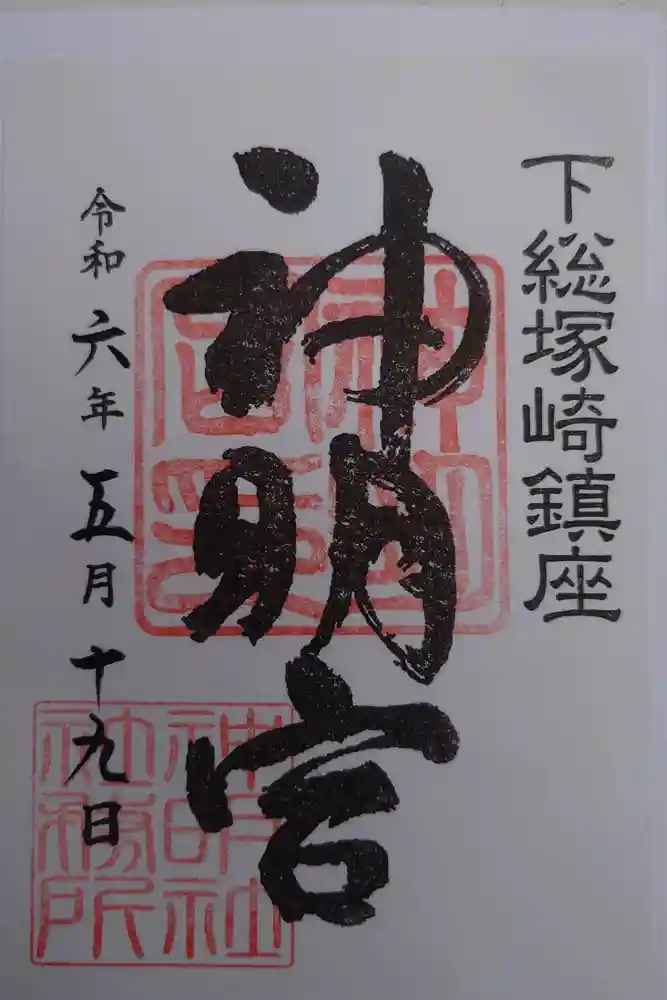 下総塚崎鎮座
神明宮
令和六年五月十九日
神明宮印
神明社
社務所